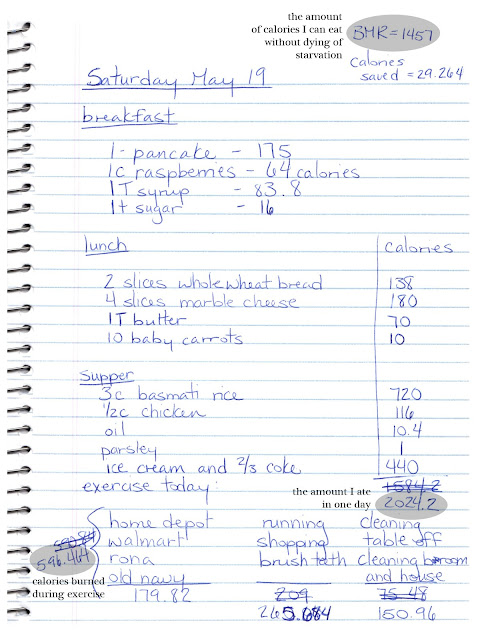 the amount
of calories I can eat
without dying of
starvation
BMR = 1457
Calories
saved = 29.264
Saturday May 19
breakfast
1 - pancake - 175
1c raspberries - 64 calories
1T syrup - 83.8
1t sugar - 16
lunch calories
2 slices whole wheat bread 138
4 slices marble cheese 180
1T butter 70
10 baby carrots 10
Supper
3c basmati rice 720
1/2c chicken 116
oil 10.4
parsley 1
ice cream and 2/3 coke 440
1584.2
exercise today:
the amount I ate
in one day
2024.2
home depot running cleaning
walmart shopping table off
rona brush teth cleaning broom
old navy and house
596.464
calories burned
during exercise
179.82 209 75.48
265.684 150.96